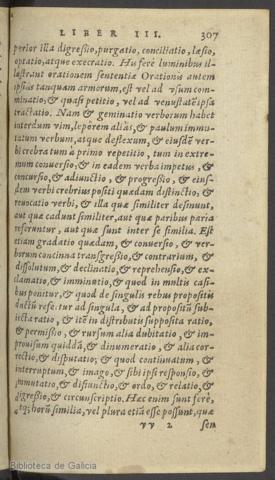 LIBER III. 307
perior illa digreßio, purgatio, conciliatio, læsio,
optatio, atque execratio. His ferè luminibus il-
lustrant orationem sententiæ. Orationis autem
ipsius tanquam armorum, est vel ad vsum com-
minatio, & quasi petitio, vel ad venustatē ipsa
tractatio. Nam & geminatio verborum habet
interdum vim, leporem aliâs, & paulum immu-
tatum verbum, atque deflexum, & eiusdē ver-
bi crebra tum à primo repetitio, tum in extre-
mum conuersio, & in eadem verba impetus, &
concursio, & adiunctio, & progreßio, & eius-
dem verbi crebrius positi quædam distinctio, &
reuocatio verbi, & illa quæ similiter desinunt,
aut quæ cadunt similiter, aut quæ paribus paria
referuntur, aut quæ sunt inter se similia. Est
etiam gradatio quædam, & conuersio, & ver-
borum concinna transgreßio, & contrarium, &
dissolutum, & declinatio, & reprehensio, & ex-
clamatio, & imminutio, & quod in multis casi-
bus ponitur, & quod de singulis rebus propositis
ductū refertur ad singula, & ad propositū sub-
iecta ratio, & itē in distributis supposita ratio,
& permißio, & rursum alia dubitatio, & im-
prouisum quiddā, & dinumeratio, & alia cor-
rectio, & disputatio; & quod continuatum, &
interruptum, & imago, & sibi ipsi responsio, &
immutatio, & disiunctio, & ordo, & relatio, &
digreßio, & circunscriptio. Hæc enim sunt ferè,
atq; horū similia, vel plura etiā esse possunt, quæ
vv 2 sen
Biblioteca de Galicia